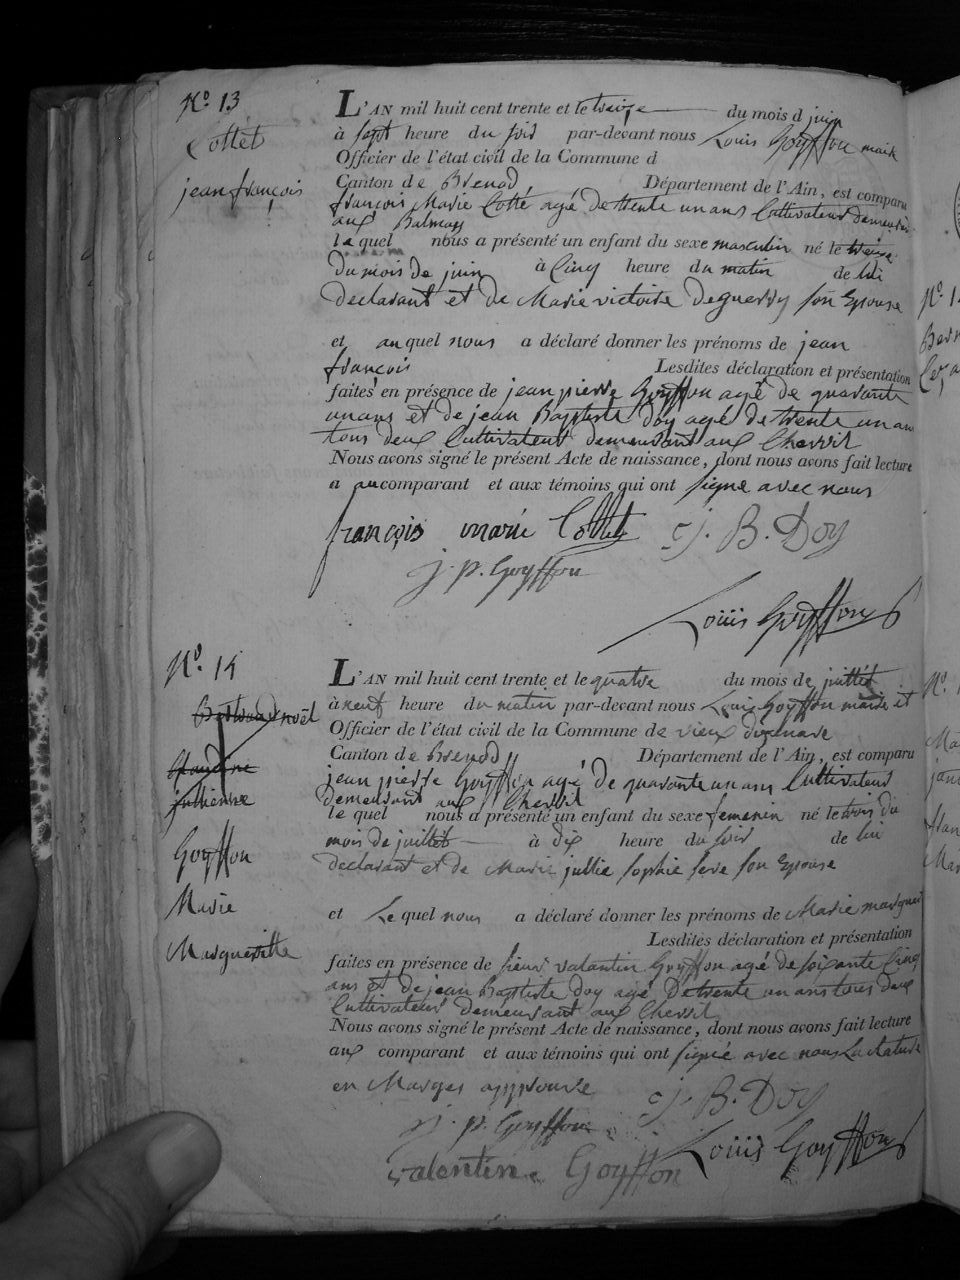 N.o 13
Collet
jean françois
L'AN mil huit cent trente et le treize du mois d juin
à sept heure du soir par-devant nous Louis Goyffon maire
Officier de l'état civil de la Commune d
Canton de Brenod Département de l'Ain, est comparu
françois Marie Cotté agé de trente un ans Cultivateur demeurant
aux Balmay
le quel nous a présenté un enfant du sexe masculin né le treize
du mois de juin à Cinq heure du matin de lui
declarant et de Marie victoire deguerry son Epouse
et au quel nous a déclaré donner les prénoms de jean
françois Lesdites déclaration et présentation
faites en présence de jean pierre Goyffon agé de quarante
un ans et de jean Baptiste doy agé de trente un an
tous deux Cultivateur demeurant aux Chevril
Nous avons signé le présent Acte de naissance, dont nous avons fait lecture
a au comparant et aux témoins qui ont signe avec nous
françois marie Collet j. B. Doy
j. p. Goyffon
Louis Goyffon
N.o 14
noël
jullienne
Goyffon
Marie
Margueritte
L'AN mil huit cent trente et le quatre du mois de juillet
à neuf heure du matin par-devant nous Louis Goyffon maire et
Officier de l'état civil de la Commune de vieux
Canton de Brenod Département de l'Ain, est comparu
jean pierre Goyffon agé de quarante un ans Cultivateur
demeurant aux Chevril
le quel nous a présenté un enfant du sexe femenin né le trois du
mois de juillet à dix heure du soir de lui
declarant et de Marie jullie sophie seve son Epouse
et Le quel nous a déclaré donner les prénoms de Marie marguerit
Lesdites déclaration et présentation
faites en présence de sieur valantin Goyffon agé de soixante Cinq
ans et de jean Baptiste doy agé de trente un ans tous deux
Cultivateur demeurant aux Chevril
Nous avons signé le présent Acte de naissance, dont nous avons fait lecture
aux comparant et aux témoins qui ont signée avec nous La rature
en Marges approuvé
j. B. Doy
j. p. Goyffon
Louis Goyffon
valentin Goyffon